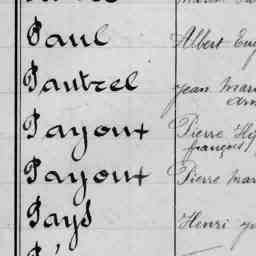 Paul Albert Eug
Pautrel Jean Mari
Payont Pierre Hip
français
Payont Pierre Mar
Pays Henri